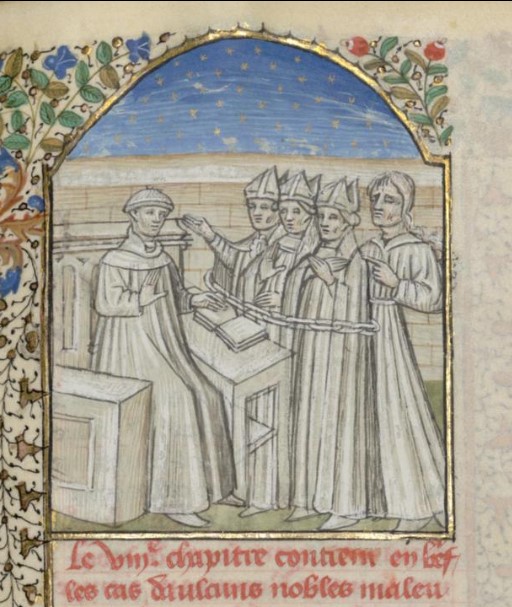 Le viiie chapitre contient en bref
les cas daulcuns nobles maleu